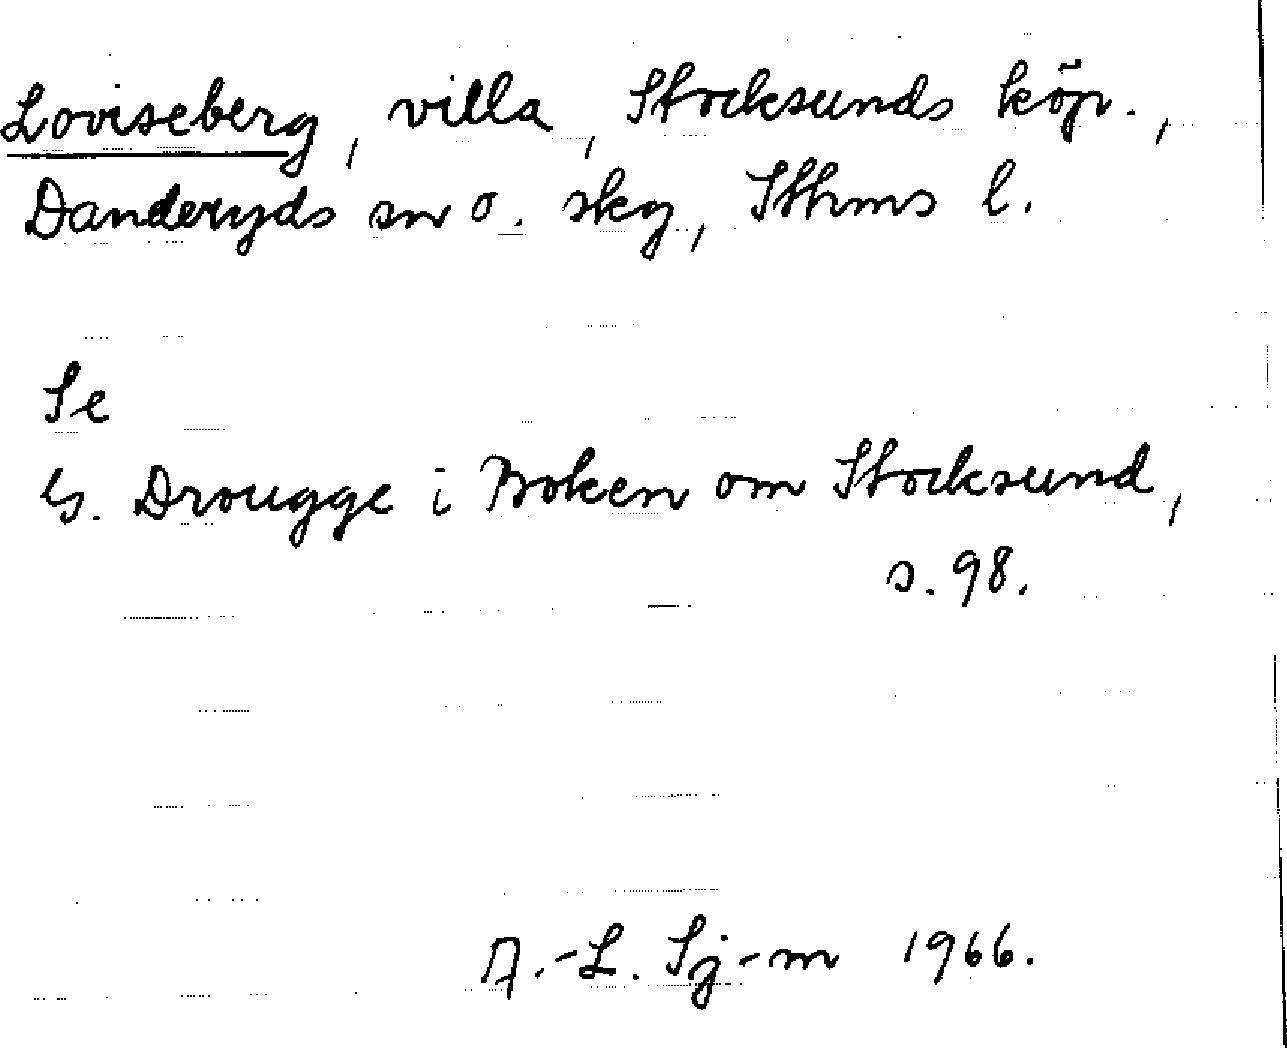 Loviseberg, villa, Stocksunds köp.,
Danderyds sn o. skg, Sthms l.
Se
G. Drougge i Boken om Stocksund,
s. 98.
A.-L. Sj-m 1966.